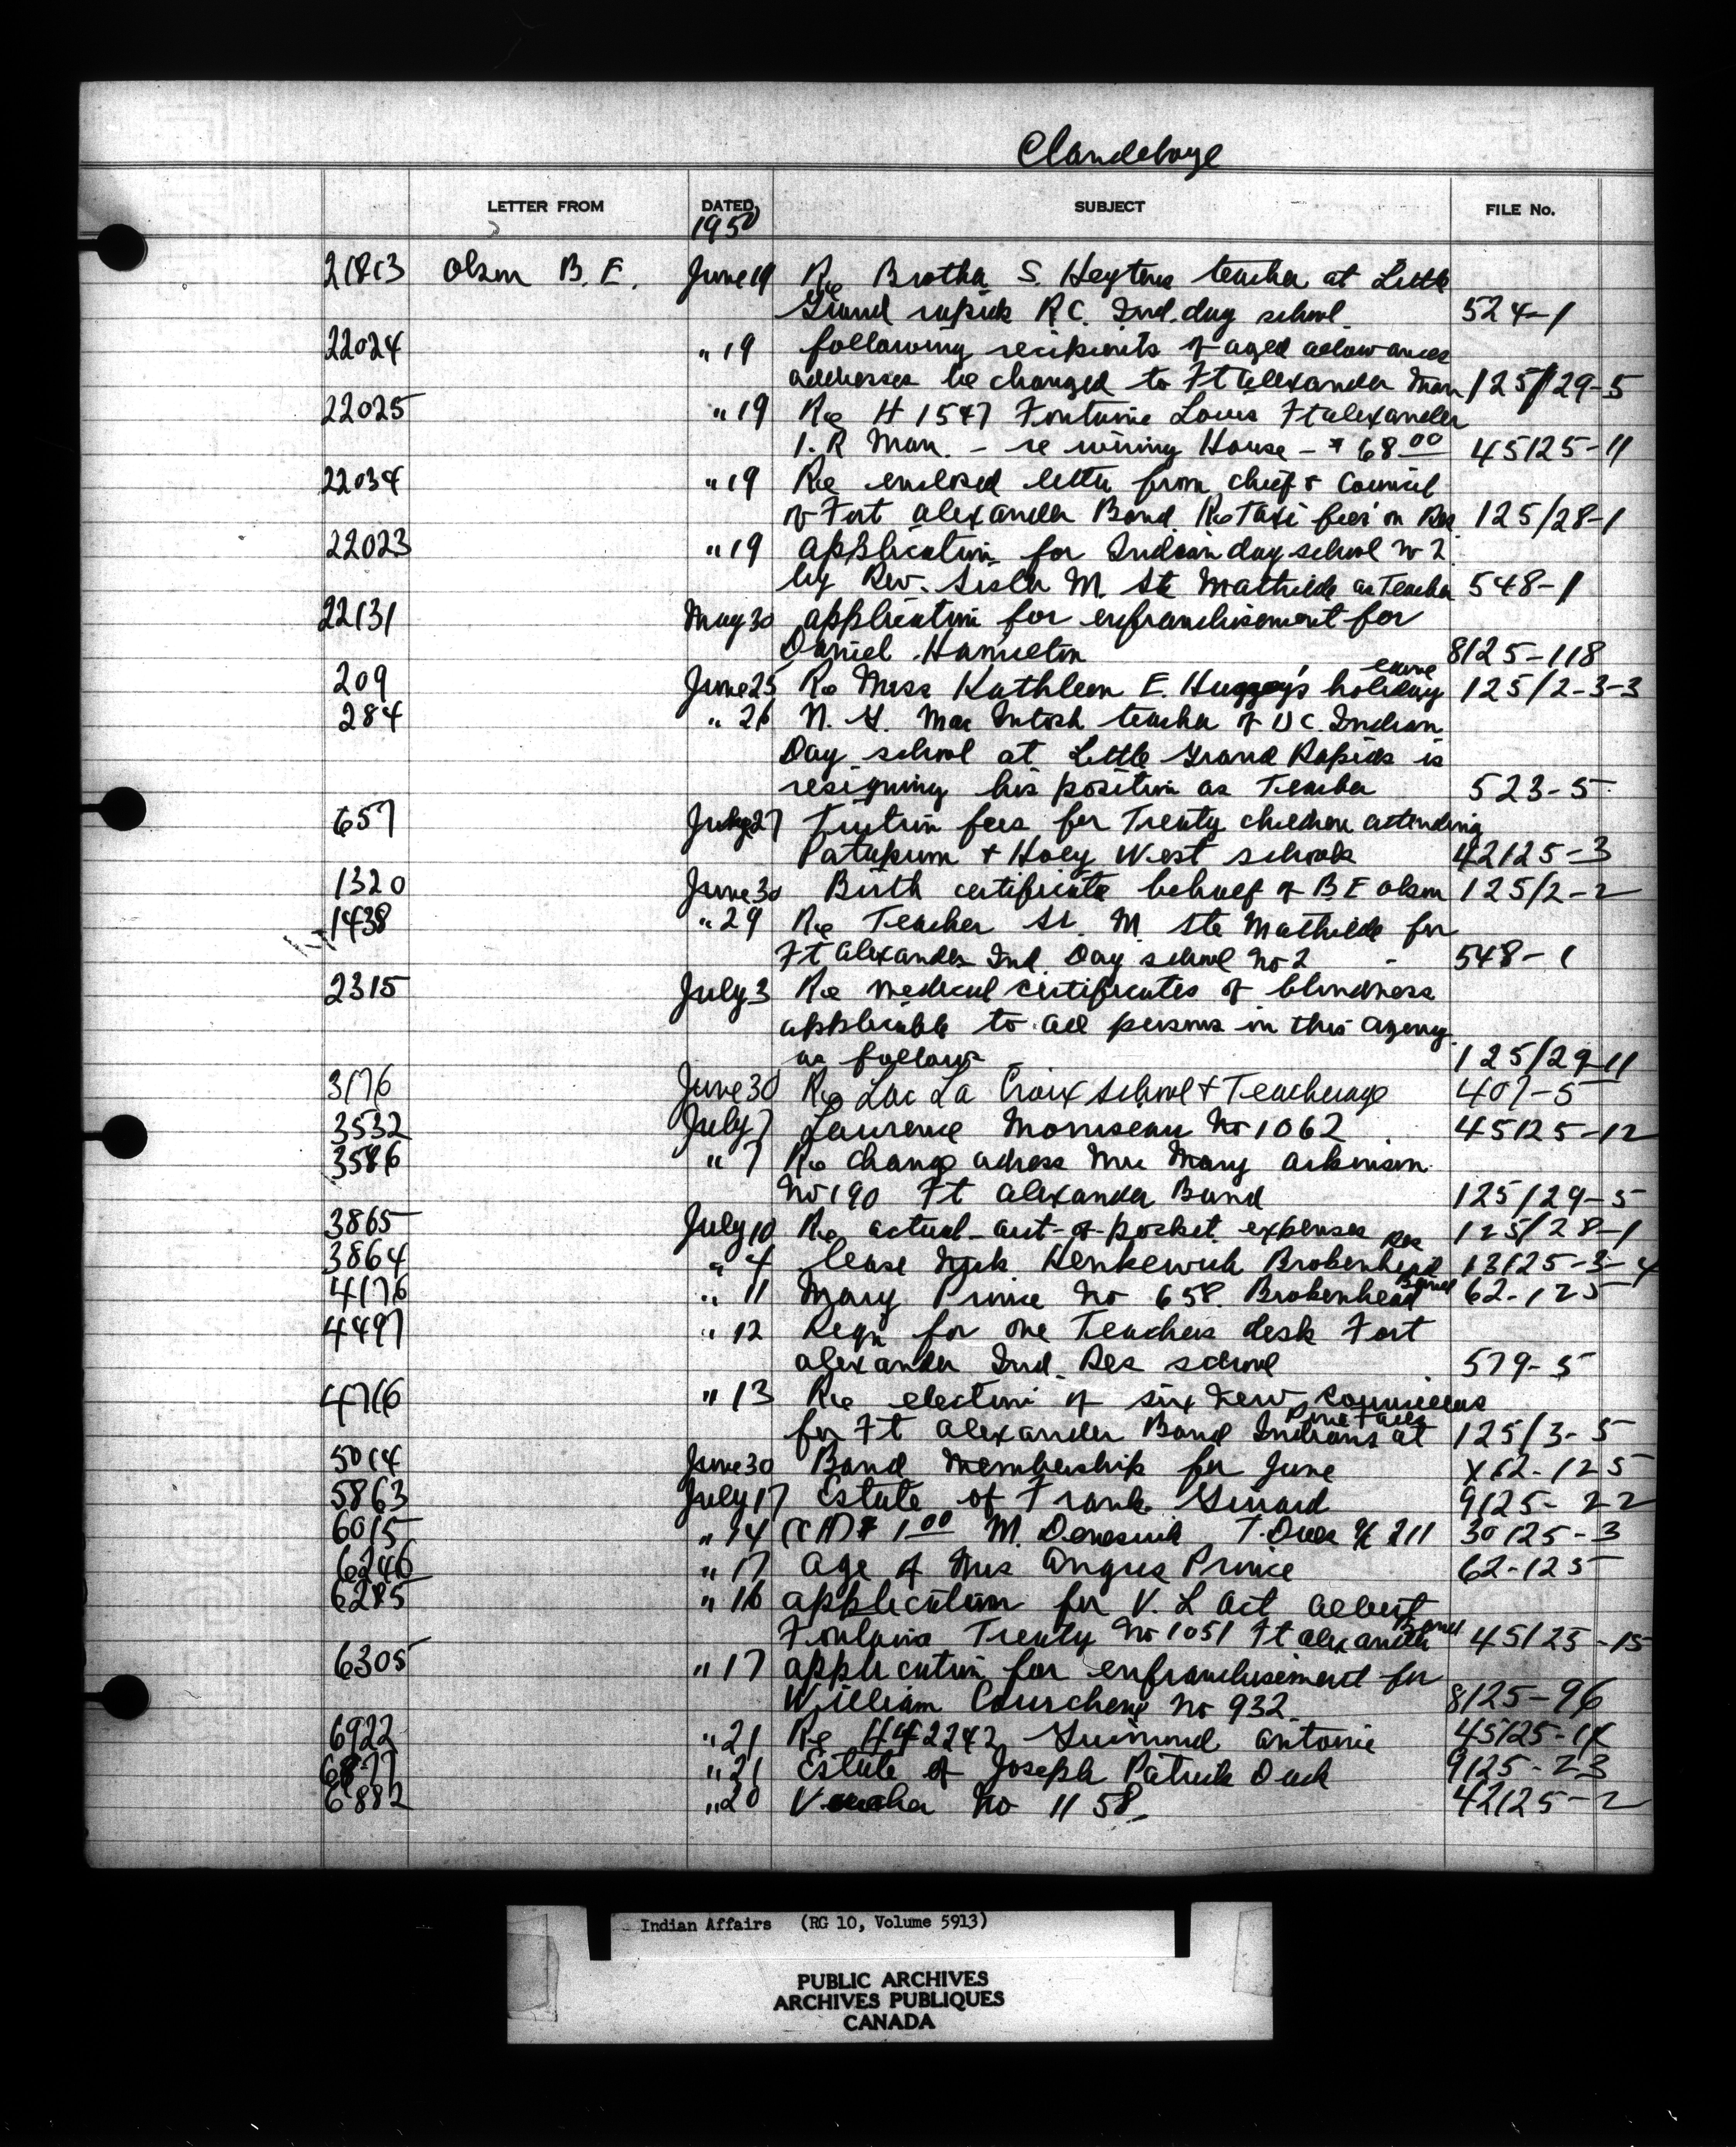 Clandeboye
LETTER FROM DATED SUBJECT FILE No.
1950
21813 Olson B. F. June 19 Re Brother S. Heytens teacher at Little
Grand rapids R.C. Ind. day school 524-1
22024 " 19 following recipients of aged allowances
addresses be changed to Ft alexander Man 125/29-5
22025 " 19 Re H 1547 Fontaine Louis Ft alexander
I. R Man. - re wiring House - $ 68 00 45125-11
22034 " 19 Re enclosed letter from chief & Council
of Fort alexander Band. Re Taxi fees on Res 125/28-1
22023 " 19 application for Indian day school no 2
by Rev. Sister M. Ste Mathilde as Teacher 548-1
22131 May 30 application for enfranchisement for
Daniel Hamelton 8125-118
209 June 25 Re Miss Kathleen E. Huggey's holiday 125/2-3-3
284 " 26 N. G. Mac Intosh teacher of U C. Indian
Day school at Little Grand Rapids is
resigning his position as Teacher 523-5
657 27 Tuition fees for Treaty children attending
& Holy West schools 42125-3
1320 June 30 Birth certificate behalf of B F olson 125/2-2
1438 " 29 Re Teacher Sr. M. Ste Mathilde for
Ft alexander Ind. Day school No 2 - 548-1
2315 July 3 Re medical certificates of blindness
applicable to all persons in this agency
as follows 125/29-11
3176 June 30 Re Lac La Croix School & Teacherage 407-5
3532 July 7 Laurence Morriseau No 1062 45125-12
3586 " 7 Re change adress Mrs Mary
No 190 Ft alexander Band 125/29-5
3865 July 10 Re actual out-of-pocket expenses 125/28-1
Res
3864 " 4 lease Nick Henkewich Brokenhead 13125-3-4
Band
4176 " 11 Mary Prince No 658. Brokenhead 62-125
4497 " 12 Reqn for one Teachers desk Fort
alexander Ind. Res school 579-5
4716 " 13 Re election of six new councillors
Pine Falls
for Ft alexander Band Indians at 125/3-5
5014 June 30 Band Membership for June X62-125
5863 July 17 Estate of Frank Girard 9125-22
6015 " 14 $ 1 00 M. 211 30125-3
6246 " 17 age of Mrs Angus Prince 62-125
6285 " 16 application for V. L act albert
Band
Fontaine Treaty No 1051 Ft alexander 45125-15
6305 " 17 application for enfranchisement for
William Courchene No 932. 8125-96
6922 " 21 Re 2242 Guimond Antoine 45125-14
6877 " 21 Estate of Joseph Patrick 9125-23
6882 " 20 Voucher No 1158 42125-2
Indian Affairs (RG 10, Volume 5913)
PUBLIC ARCHIVES
ARCHIVES PUBLIQUES
CANADA